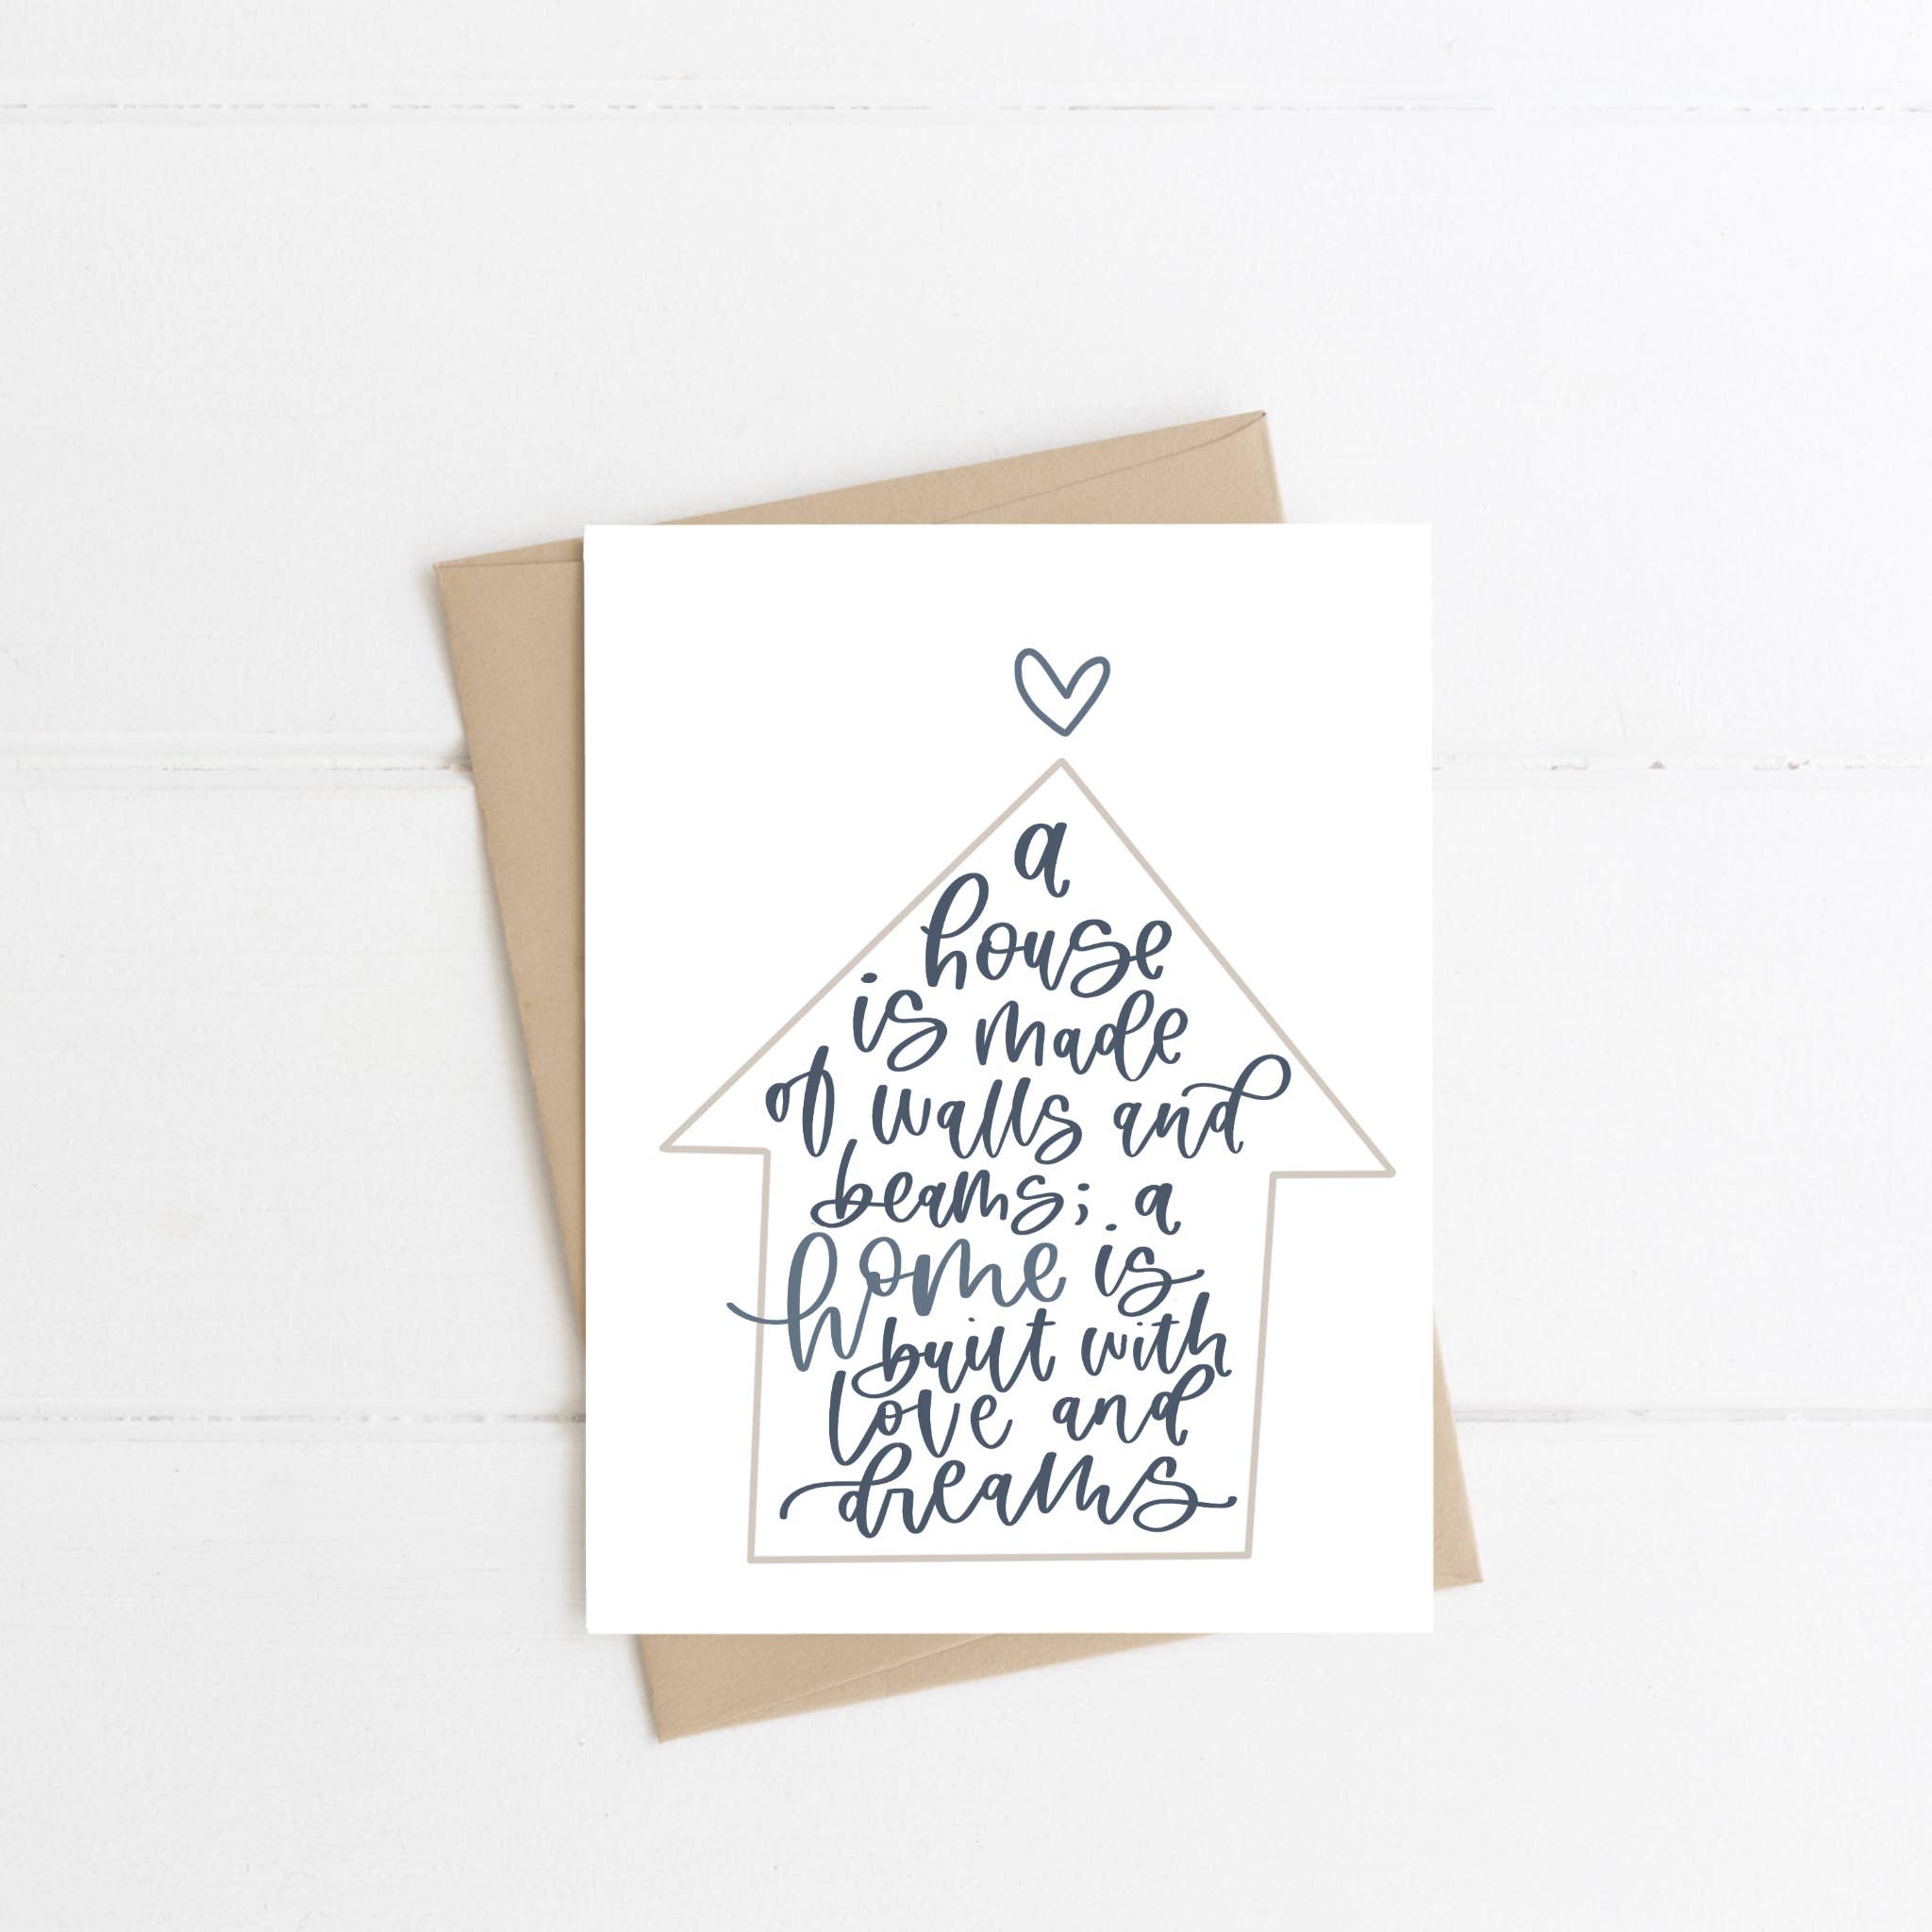 a
house
is made
of walls and
beams; a
home is
built with
love and
dreams